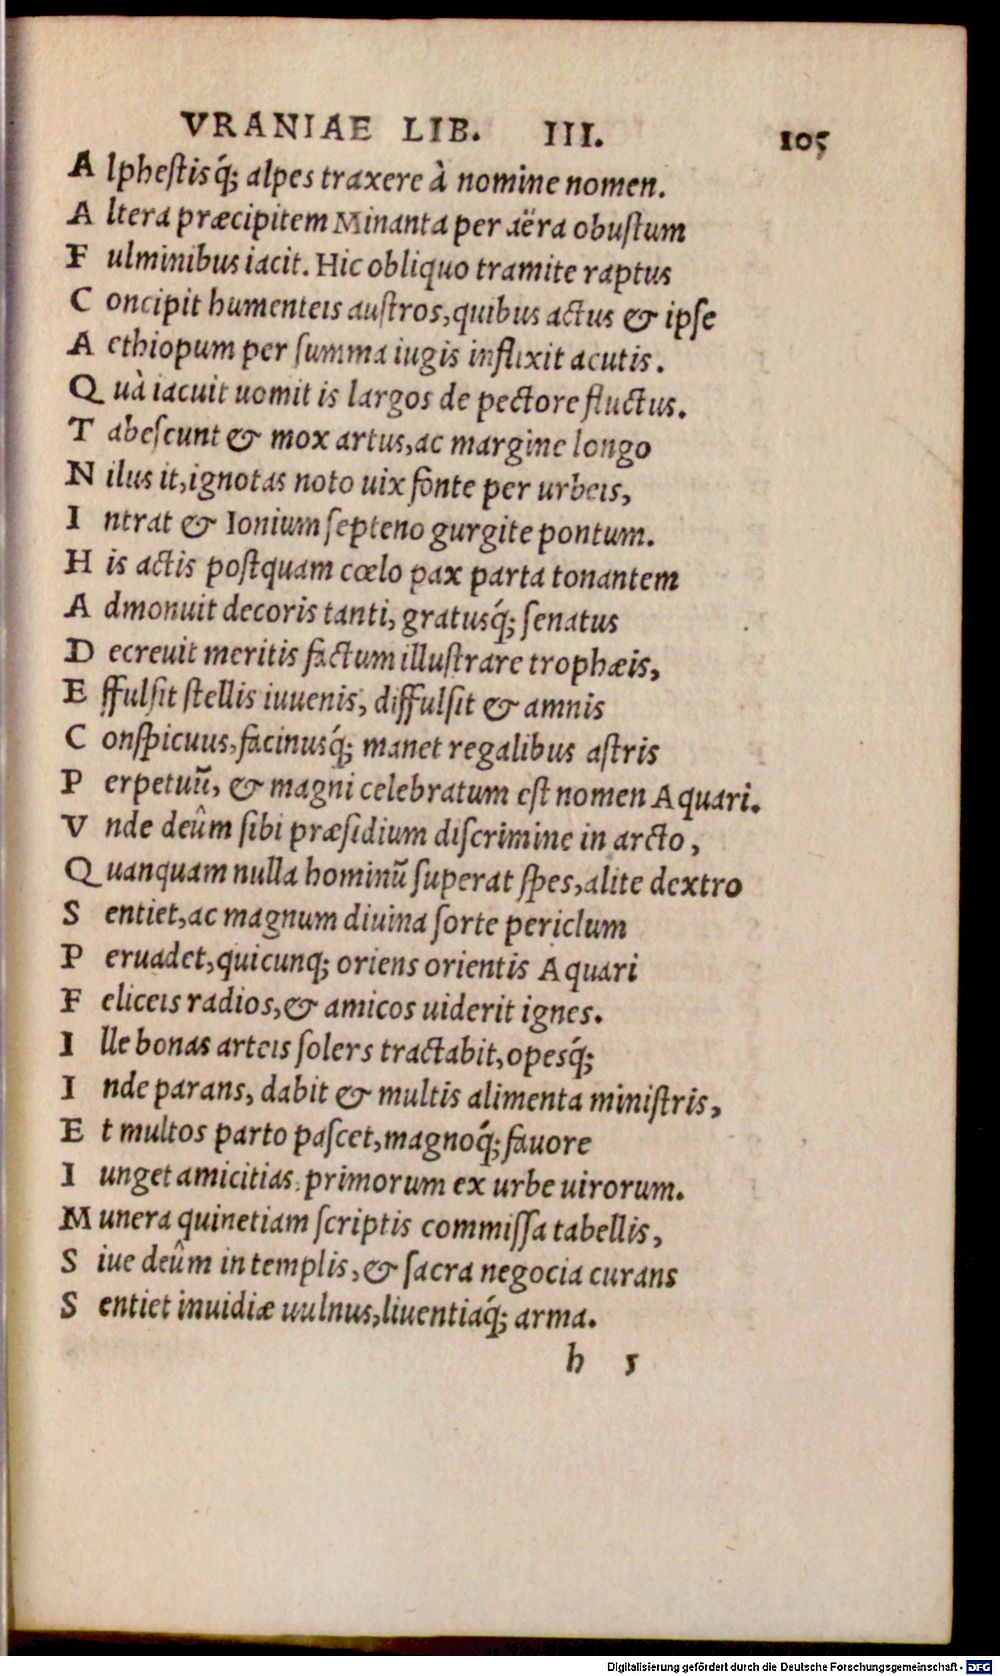 VRANIAE LIB. III. 105
Alphestisq́; alpes traxere à nomine nomen.
Altera præcipitem Minanta per aëra obustum
Fulminibus iacit. Hic obliquo tramite raptus
Concipit humenteis austros, quibus actus & ipse
Aethiopum per summa iugis influxit acutis.
Quà iacuit uomit is largos de pectore fluctus.
Tabescunt & mox artus, ac margine longo
Nilus it, ignotas noto uix fonte per urbeis,
Intrat & Ionium septeno gurgite pontum.
His actis postquam cœlo pax parta tonantem
Admonuit decoris tanti, gratusq́; senatus
Decreuit meritis factum illustrare trophæis,
Effulsit stellis iuuenis, diffulsit & amnis
Conspicuus, facinusq́; manet regalibus astris
Perpetuū, & magni celebratum est nomen Aquari.
Vnde deûm sibi præsidium discrimine in arcto,
Quanquam nulla hominū superat spes, alite dextro
Sentiet, ac magnum diuina sorte periclum
Peruadet, quicunq; oriens orientis Aquari
Feliceis radios, & amicos uiderit ignes.
Ille bonas arteis solers tractabit, opesq́;
Inde parans, dabit & multis alimenta ministris,
Et multos parto pascet, magnoq́; fauore
Iunget amicitias primorum ex urbe uirorum.
Munera quinetiam scriptis commissa tabellis,
Siue deûm in templis, & sacra negocia curans
Sentiet inuidiæ uulnus, liuentiaq́; arma.
h 5
Digitalisierung gefördert durch die Deutsche Forschungsgemeinschaft - DFG